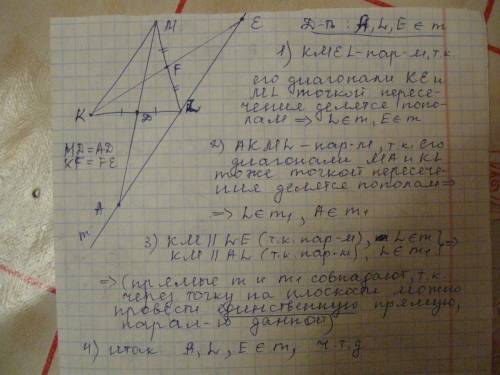 М
E
Д-ть: A, L, E ∈ m
F
K
D
L
MD = AD
KF = FE
A
m
1) KMEL - пар-м, т.к.
его диагонали KE и
ML точкой пересе-
чения делятся попо-
лам ⇒ L∈m, E∈m
2) AKML - пар-м, т.к. его
диагонали MA и KL
тоже точкой пересече-
ния делятся пополам ⇒
⇒ L∈m₁, A∈m₁
3) KM || LE (т.к. пар-м), L∈m
KM || AL (т.к. пар-м), L∈m₁ } ⇒
⇒ (прямые m и m₁ совпадают, т.к.
через точку на плоскости можно
провести единственную прямую,
парал-ю данной)
4) итак A, L, E ∈ m, ч.т.д